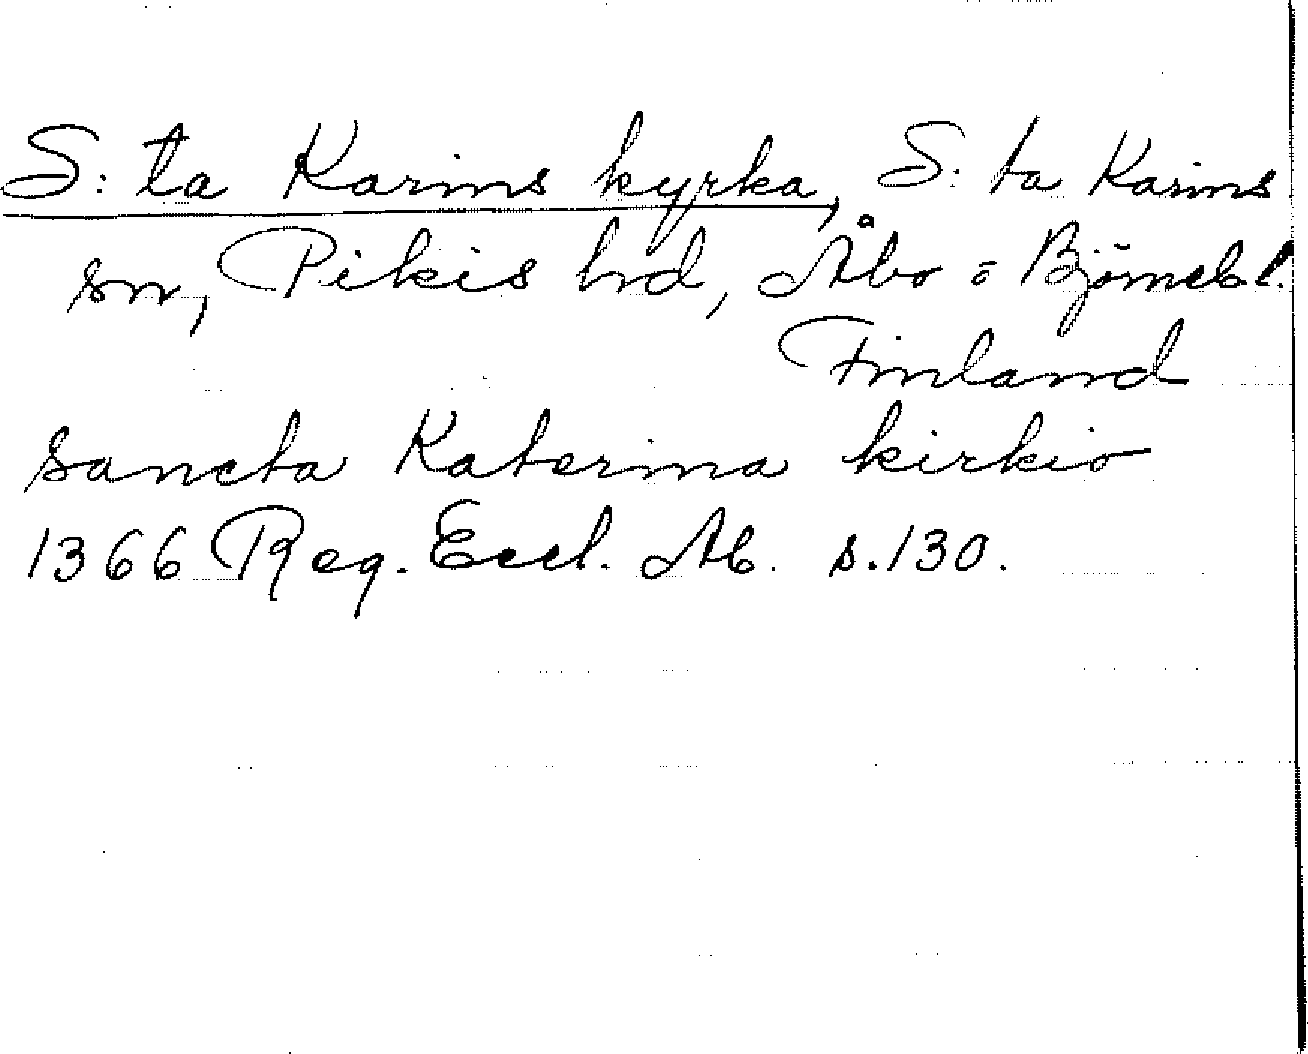 S:ta Karins kyrka, S:ta Karins
sn, Pikis hd, Åbo o Björneb l.
Finland
sancta Katerina kirkio
1366 Reg. Eccl. Ab. s.130.